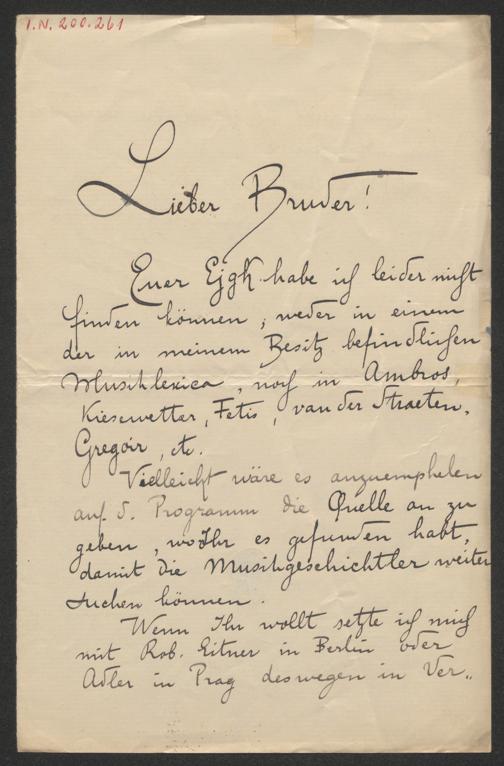 I.N. 200.261
Lieber Bruder!
Euer Ejgk habe ich leider nicht
finden können, weder in einem
der in meinem Besitz befindlichen
Musiklexica, noch in Ambros,
Kiesewetter, Fetis, van der Straeten,
Gregoir, etc.
Vielleicht wäre es anzuempfehlen
auf d. Programm die Quelle an zu
geben, wo Ihr es gefunden habt,
damit die Musikgeschichtler weiter
suchen können.
Wenn Ihr wollt setzte ich mich
mit Rob. Eitner in Berlin oder
Adler in Prag deswegen in Ver„